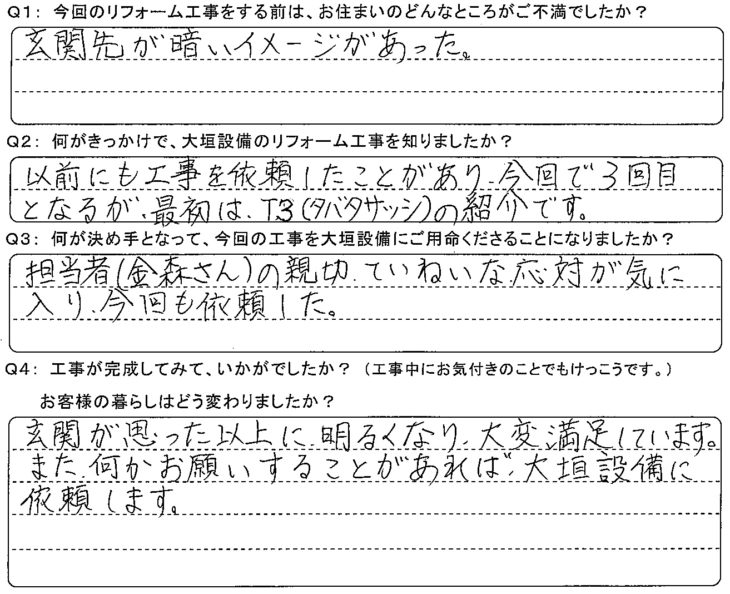 Q1: 今回のリフォーム工事をする前は、お住まいのどんなところがご不満でしたか？
玄関先が暗いイメージがあった。
Q2: 何がきっかけで、大垣設備のリフォーム工事を知りましたか？
以前にも工事を依頼したことがあり、今回で3回目
となるが、最初は、T3(タバタサッシ)の紹介です。
Q3: 何が決め手となって、今回の工事を大垣設備にご用命くださることになりましたか？
担当者(金森さん)の親切、ていねいな応対が気に
入り、今回も依頼した。
Q4: 工事が完成してみて、いかがでしたか？（工事中にお気付きのことでもけっこうです。）
お客様の暮らしはどう変わりましたか？
玄関が思った以上に、明るくなり、大変満足しています。
また、何かお願いすることがあれば、大垣設備に
依頼します。